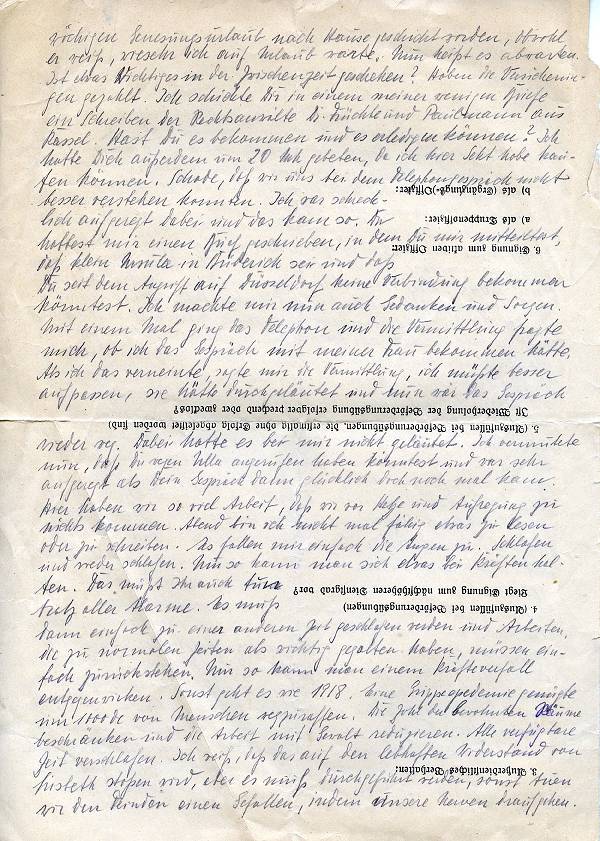 wöchigen Genesungsurlaub nach Hause geschickt worden, obwohl
er weiß, wie sehr ich auf Urlaub warte. Nun heißt es abwarten.
Ist etwas Wichtiges in der Zwischenzeit geschehen? Haben die Versicherun-
gen gezahlt. Ich schickte Dir in einem meiner wenigen Briefe
ein Schreiben der Rechtsanwälte Dr. und aus
Kassel. Hast Du es bekommen und es erledigen können? Ich
hatte Dich außerdem um 20 gebeten, da ich hier Sekt habe kau-
fen können. Schade, daß wir uns bei dem Telephongespräch nicht
b) als (Ergänzungs-)Offizier:
besser verstehen konnten. Ich war schreck-
a) als Truppenoffizier:
lich aufgeregt dabei und das kam so. Du
hattest mir einen Brief geschrieben, in dem Du mir mitteiltest,
6. Eignung zum aktiven Offizier:
daß klein Ursula in Büderich sei und daß
Du seit dem Angriff auf Düsseldorf keine Verbindung bekommen
könntest. Ich machte mir nun auch Gedanken und Sorgen.
Mit einem Mal ging das Telephon und die Vermittlung fragte
mich, ob ich das Gespräch mit meiner Frau bekommen hätte.
Als ich das verneinte, sagte mir die Vermittlung, ich müßte besser
aufpassen, sie hätte durchgeläutet und nun war das Gespräch
Ist Wiederholung der Beförderungsübung erfolgversprechend oder zwecklos?
5. Auszufüllen bei Beförderungsübungen, die erstmalig ohne Erfolg abgeleistet worden sind)
wieder weg. Dabei hatte es bei mir nicht geläutet. Ich vermutete
nun, daß Du wegen Ulla angerufen haben könntest und war sehr
aufgeregt als Dein Gespräch dann glücklich doch noch mal kam.
Hier haben wir so viel Arbeit, daß wir vor Hetze und Aufregung zu
nichts kommen. Abend bin ich nicht mal fähig etwas zu lesen
oder zu schreiben. Es fallen mir einfach die Augen zu. Schlafen
und wieder schlafen. Nur so kann man sich etwas bei Kräften hal-
ten. Das müßt Ihr auch tun
liegt Eignung zum nächsthöheren Dienstgrad vor?
trotz aller Alarme. Es muß
4. (Auszufüllen bei Beförderungsübungen)
dann einfach zu einer anderen Zeit geschlafen werden und Arbeiten,
die zu normalen Zeiten als wichtig gegolten haben, müssen ein-
fach zurückstehen. Nur so kann man einem Kräfteverfall
entgegenwirken. Sonst geht es wie 1918. Eine Grippeepedemie genügte
um 1000de von Menschen wegzuraffen. Die Zahl der bewohnten Räume
beschränken und die Arbeit mit Gewalt reduzieren. Alle verfügbare
Zeit verschlafen. Ich weiß, daß das auf den lebhaften Widerstand von
3. Außerdienstliches Verhalten:
stoßen wird, aber es muß durchgeführt werden, sonst tuen
wir den Feinden einen Gefallen, indem unsere Nerven draufgehen.